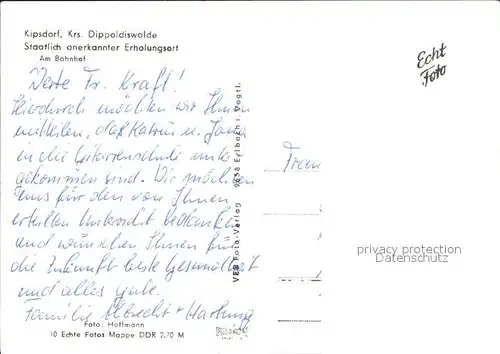 Kipsdorf, Krs. Dippoldiswalde
Staatlich anerkannter Erholungsort
Am Bahnhof
Echt
Foto
Werte Fr. Kraft!
Hierdurch möchten wir Ihnen
mitteilen, daß Katrin u. Jana
in die Gitarrenschule unter
gekommen sind. Wir möchten
uns für den von Ihnen
erteilten Unterricht bedanken
und wünschen Ihnen für
die Zukunft beste Gesundheit
und alles Gute.
Familie Albrecht + Hartung
VEB Foto-Verlag 9658 Erlbach i. Vogtl.
Frau
privacy protection
Datenschutz
Foto: Hoffmann
10 Echte Fotos Mappe DDR 2,70 M